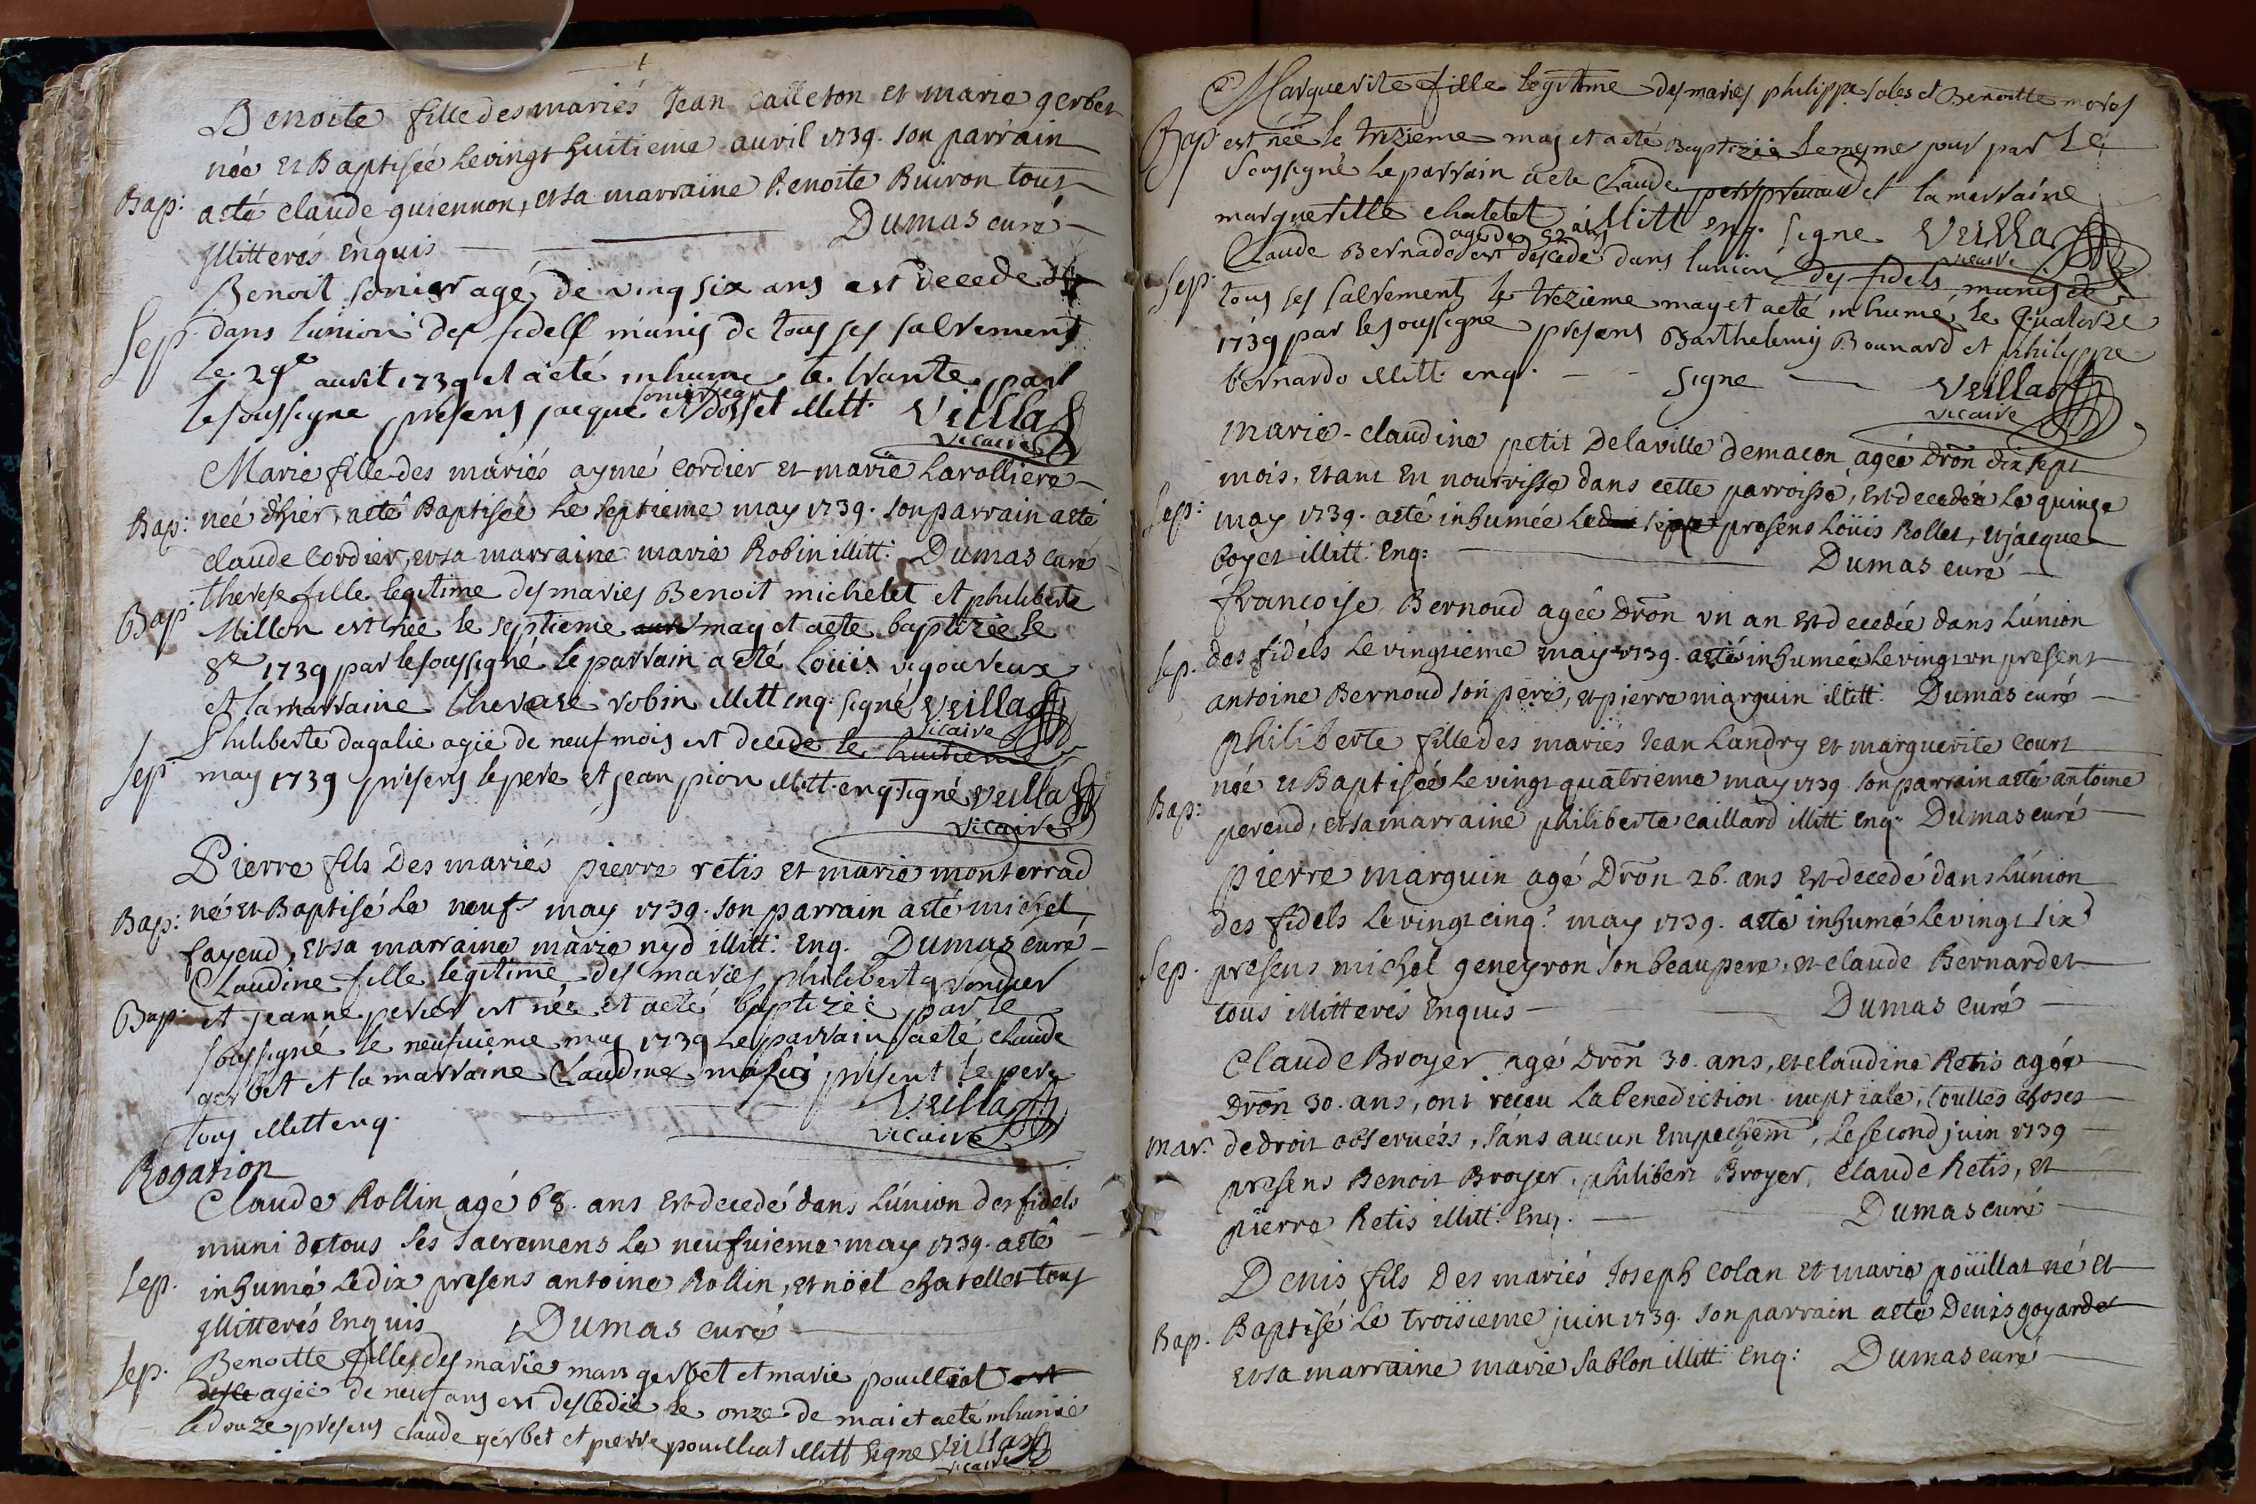 Benoite fille des mariés Jean Calleton et marie gerbet
née et Baptisée le vingt huitieme auvril 1739. son parrain
Bap: acté claude guiennon, et sa marraine Benoite Buiron tous
illitterés Enquis Dumas curé
Benoit sonier agé de vinq six ans est decede
Sep. dans lunion des fidelf munis de tous ses salvement
le 29e auvril 1739 et a été inhumé le trante par
le soussigné presens jacque sonier et dosset illitt. Veilla
vicaire
Marie fille des mariés aymé Cordier et marie Larolliere
Bap: née d'hier, acté Baptisée le septieme may 1739. son parrain acté
claude Cordier, et sa marraine marie Robin illitt: Dumas curé
therese fille legitime des maries Benoit michelet et philiberte
Bap. Millon est née le septieme may et aeté baptizée le
8e 1739 par le soussigné le parrain a eté Loüis vigoureux
et la marraine therese robin illitt enq. signé Veilla
vicaire
Philiberte dagalie agée de neuf mois est decede le huitieme
Sep. may 1739 presens le pere et jean pion illitt. enq signé Veilla
vicaire
Pierre fils Des mariés pierre retis et marie monterrad
Bap: né et Baptisé le neuf may 1739. son parrain acté michel
fayend, et sa marraine marie nyd illitt: Enq. Dumas curé
Claudine fille legitime des maries philibert
Bap: et jeanne perier est née et aeté baptizée par le
soussigné le neufvieme may 1739 le parrain aeté claude
gerbet et la marraine Claudine present le pere
tous illitt enq. Veilla
vicaire
Rogation
Claude Rollin agé 68. ans Est decedé dans L'union des fidels
muni de tous ses sacremens le neufvieme may 1739. acté
Sep. inhumé le dix presens antoine Rollin, et nöel chatellet tous
illitterés Enquis Dumas curé
Sep. Benoitte fille des maries marc gerbet et marie pouilliat
agée de neuf ans est desledée le onze de mai et aeté inhumée
le douze presens claude gerbet et pierre pouilliat illitt signe Veilla
vicaire
Marguerite fille legitime des maries philippe sales et Benoitte moros
Bap est née le trezieme may et aeté Baptizée le meme jour par le
soussigné le parrain a ete Claude et la marraine
marguerille chatelet illitt enq. signe Veilla
vicaire
Claude Bernado agé de 52 ans est descedé dans lunion des fidels munis de
Sep. tous ses salvements le trezieme may et aeté inhumé le quatorze
1739 par le soussigné presens Barthelemy Bounard et philippe
bernardo illitt. enq. signe Veilla
vicaire
Marie-claudine petit De la ville de macon agée dron dix sept
mois, etant En nourrisse dans cette parroisse, Est decedée le quinze
Sep: may 1739. acté inhumée presens Loüis Rollet, et jacque
boyer illitt: Enq: Dumas curé
francoise Bernoud agée Dron un an Est decedée dans L'union
Sep. des fidels le vingtieme may 1739. acté inhumée le vingt un present
antoine Bernoud son pere, et pierre marguin illitt: Dumas curé
philiberte fille des mariés Jean Landry et marguerite Court
née et Baptisée le vingt quatrieme may 1739. son parrain acté antoine
Bap: perend, et sa marraine philiberte caillard illitt Enq: Dumas curé
pierre marguin agé Dron 26. ans Est decedé dans L'union
des fidels le vingt cinq.e may 1739. acté inhumé le vingt six
Sep. presens michel geneyron son beaupere, et claude Bernardet
tous illitterés Enquis Dumas curé
Claude Broyer agé Dron 30. ans, et claudine Retis agée
Dron 30. ans, ont receu La benediction nuptiale, touttes choses
mar. de droit observées, sans aucun Empechem, le second juin 1739
presens Benoit Broyer, philibert Broyer, claude Retis, et
pierre Retis illitt: Enq. Dumas curé
Denis fils Des mariés Joseph Colan et marie poüillat né et
Bap. Baptisé le troisieme juin 1739. son parrain acté Denis goyardet
et sa marraine marie sablon illitt: Enq: Dumas curé